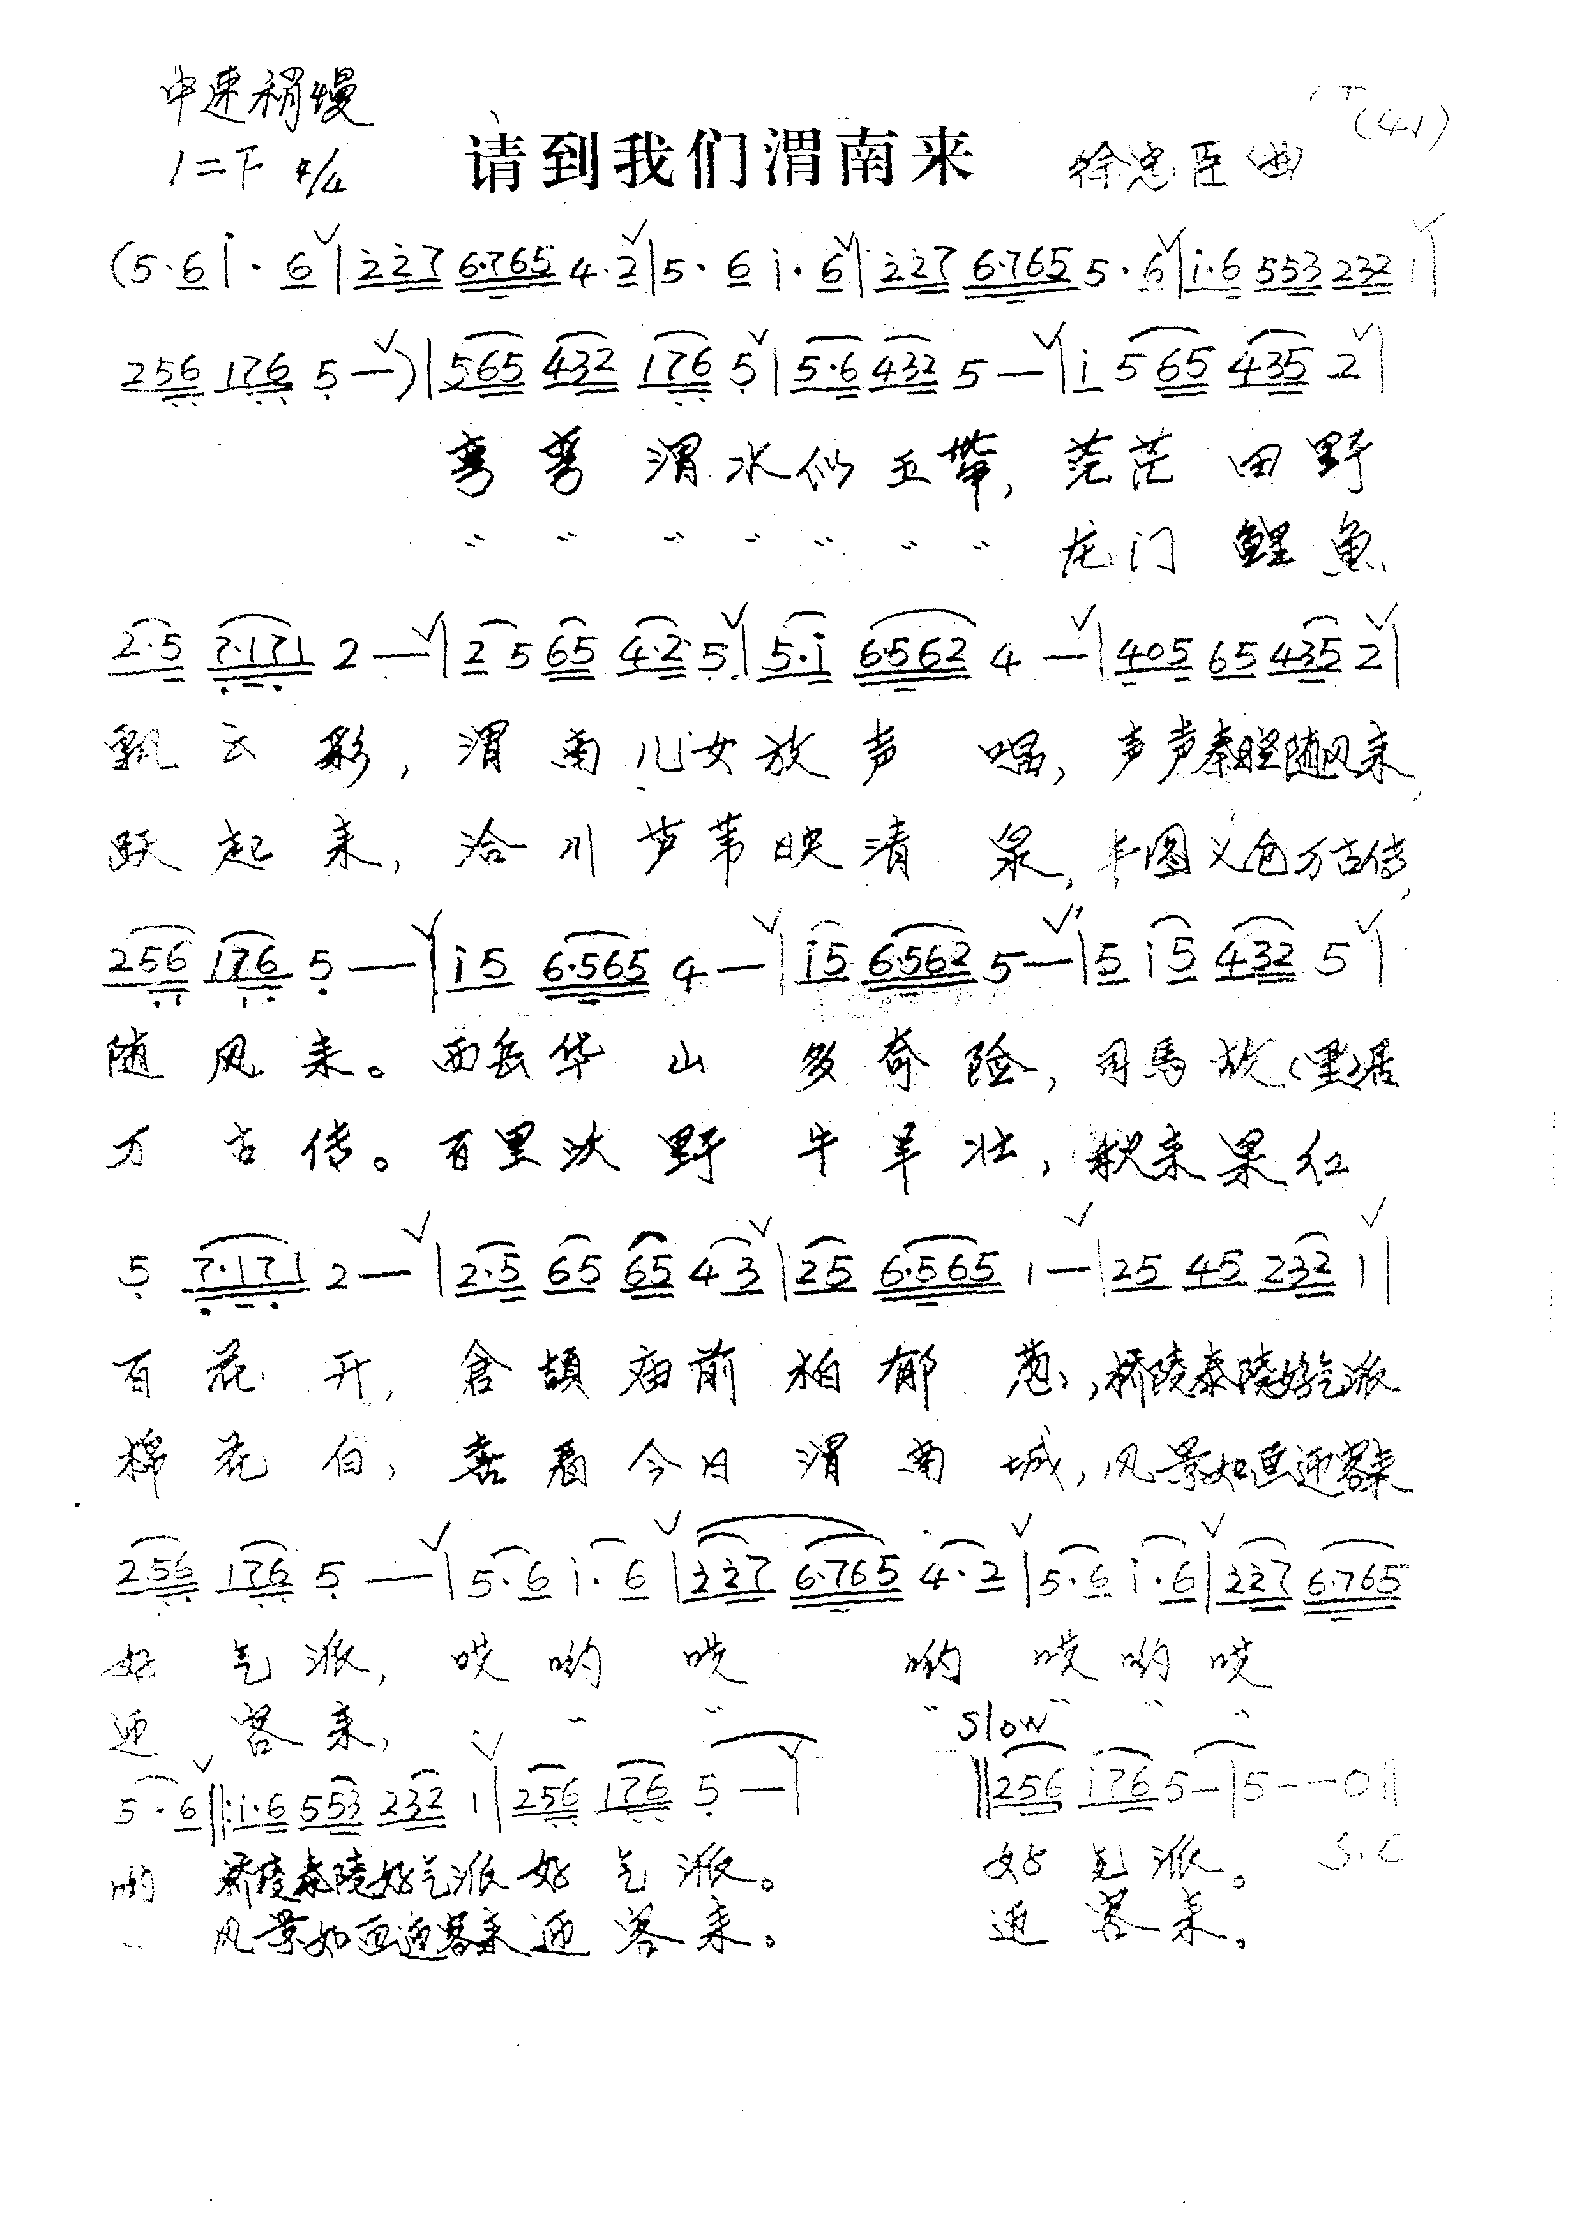 中速稍慢
(41)
1=下 4/4 请到我们渭南来 徐忠臣(曲)
(5·6 i·6|2 2 7 6·765 4·2|5·6 i·6|2 2 7 6·765 5·6|i·6 553 232 1|
256 176 5—)|565 432 176 5|5·6 432 5—|i 5 65 435 2|
弯弯渭水似玉带, 茫茫田野
〃 〃 〃 〃 〃 〃 〃 龙门鲤鱼
2·5 7·171 2—|2 5 65 4·2 5|5·i 6·562 4—|405 65 435 2|
飘云彩, 渭南儿女放声唱, 声声秦腔随风来,
跃起来, 洽川芦苇映清泉, 丰图义仓万古传,
256 176 5—|i5 6·565 4—|i5 6·562 5—|5 i 5 432 5|
随风来。西岳华山多奇险, 司马故(里)居
万古传。百里沃野牛羊壮, 秋来果红
5 7·171 2—|2·5 65 65 43|25 6·565 1—|25 45 232 1|
百花开, 仓颉庙前柏郁葱, 桥陵泰陵好气派
棉花白, 喜看今日渭南城, 风景如画迎客来
256 176 5—|5·6 i·6|2 2 7 6·765 4·2|5·6 i·6|2 2 7 6·765
好气派, 哎哟哎 哟哎哟哎
迎客来, 〃 〃 〃 〃 〃 〃 〃
Slow
5·6‖:i·6 553 232 1|256 176 5—| ‖256 i76 5—|5--0‖
哟 桥陵泰陵好气派好气派。 好气派。
〃 风景如画迎客来迎客来。 迎客来。